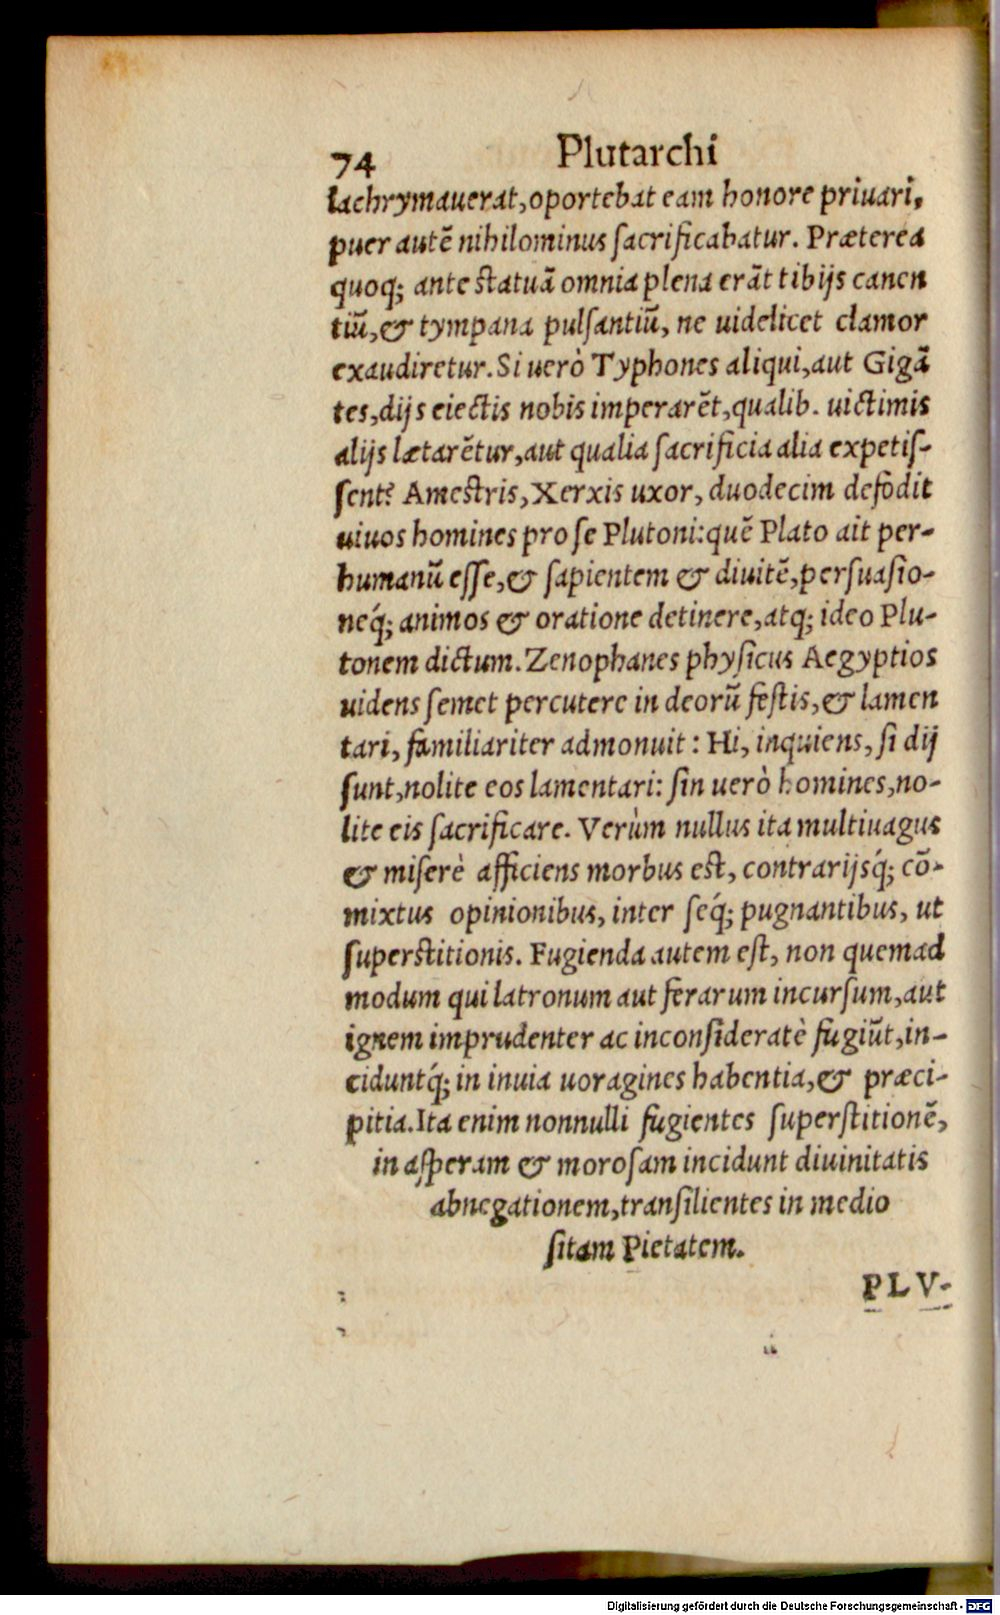 74 Plutarchi
lachrymauerat, oportebat eam honore priuari,
puer autē nihilominus ſacrificabatur. Præterea
quoq; ante ſtatuā omnia plena erāt tibijs canen
tiū, & tympana pulſantiū, ne uidelicet clamor
exaudiretur. Si uerò Typhones aliqui, aut Gigā
tes, dijs eiectis nobis imperarēt, qualib. uictimis
alijs lætarētur, aut qualia ſacrificia alia expetiſ-
ſent? Ameſtris, Xerxis uxor, duodecim defōdit
uiuos homines pro ſe Plutoni: quē Plato ait per-
humanū eſſe, & ſapientem & diuitē, perſuaſio-
neq́; animos & oratione detinere, atq; ideo Plu-
tonem dictum. Zenophanes phyſicus Aegyptios
uidens ſemet percutere in deorū feſtis, & lamen
tari, familiariter admonuit: Hi, inquiens, ſi dij
ſunt, nolite eos lamentari: ſin uerò homines, no-
lite eis ſacrificare. Verùm nullus ita multiuagus
& miſerè afficiens morbus eſt, contrarijsq́; cō-
mixtus opinionibus, inter ſeq́; pugnantibus, ut
ſuperſtitionis. Fugienda autem eſt, non quemad
modum qui latronum aut ferarum incurſum, aut
ignem imprudenter ac inconſideratè fugiūt, in-
ciduntq́; in inuia uoragines habentia, & præci-
pitia. Ita enim nonnulli fugientes ſuperſtitionē,
in aſperam & moroſam incidunt diuinitatis
abnegationem, tranſilientes in medio
ſitam Pietatem.
PLV-
Digitalisierung gefördert durch die Deutsche Forschungsgemeinschaft - DFG